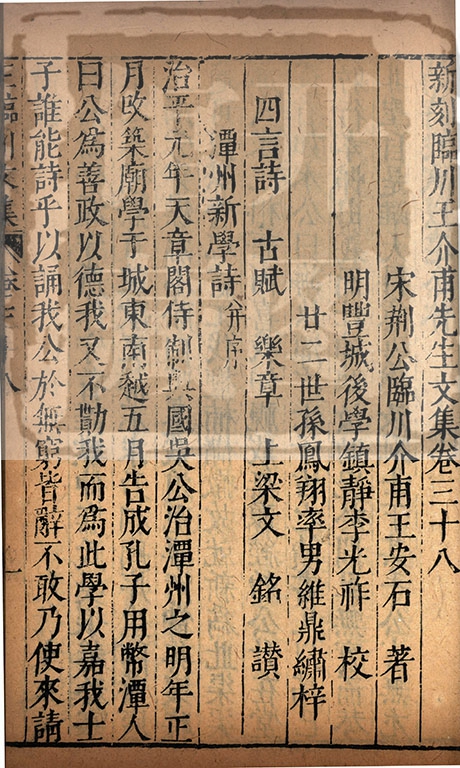 新刻臨川王介甫先生文集卷三十八
宋荆公臨川介甫王安石 著
明豐城後學鎮靜李光祚 校
廿二世孫鳳翔率男維鼎繡梓
四言詩 古賦 樂章 上梁文 銘 讃
潭州新學詩 并序
治平元年天章閣侍制興國吳公治潭州之明年正
月攺築廟學于城東南越五月告成孔子用幣潭人
曰公爲善政以德我又不勸我而爲此學以嘉我士
子誰能詩乎以誦我公於無窮皆辭不敢乃使來請
王臨川文集 卷三十八 一